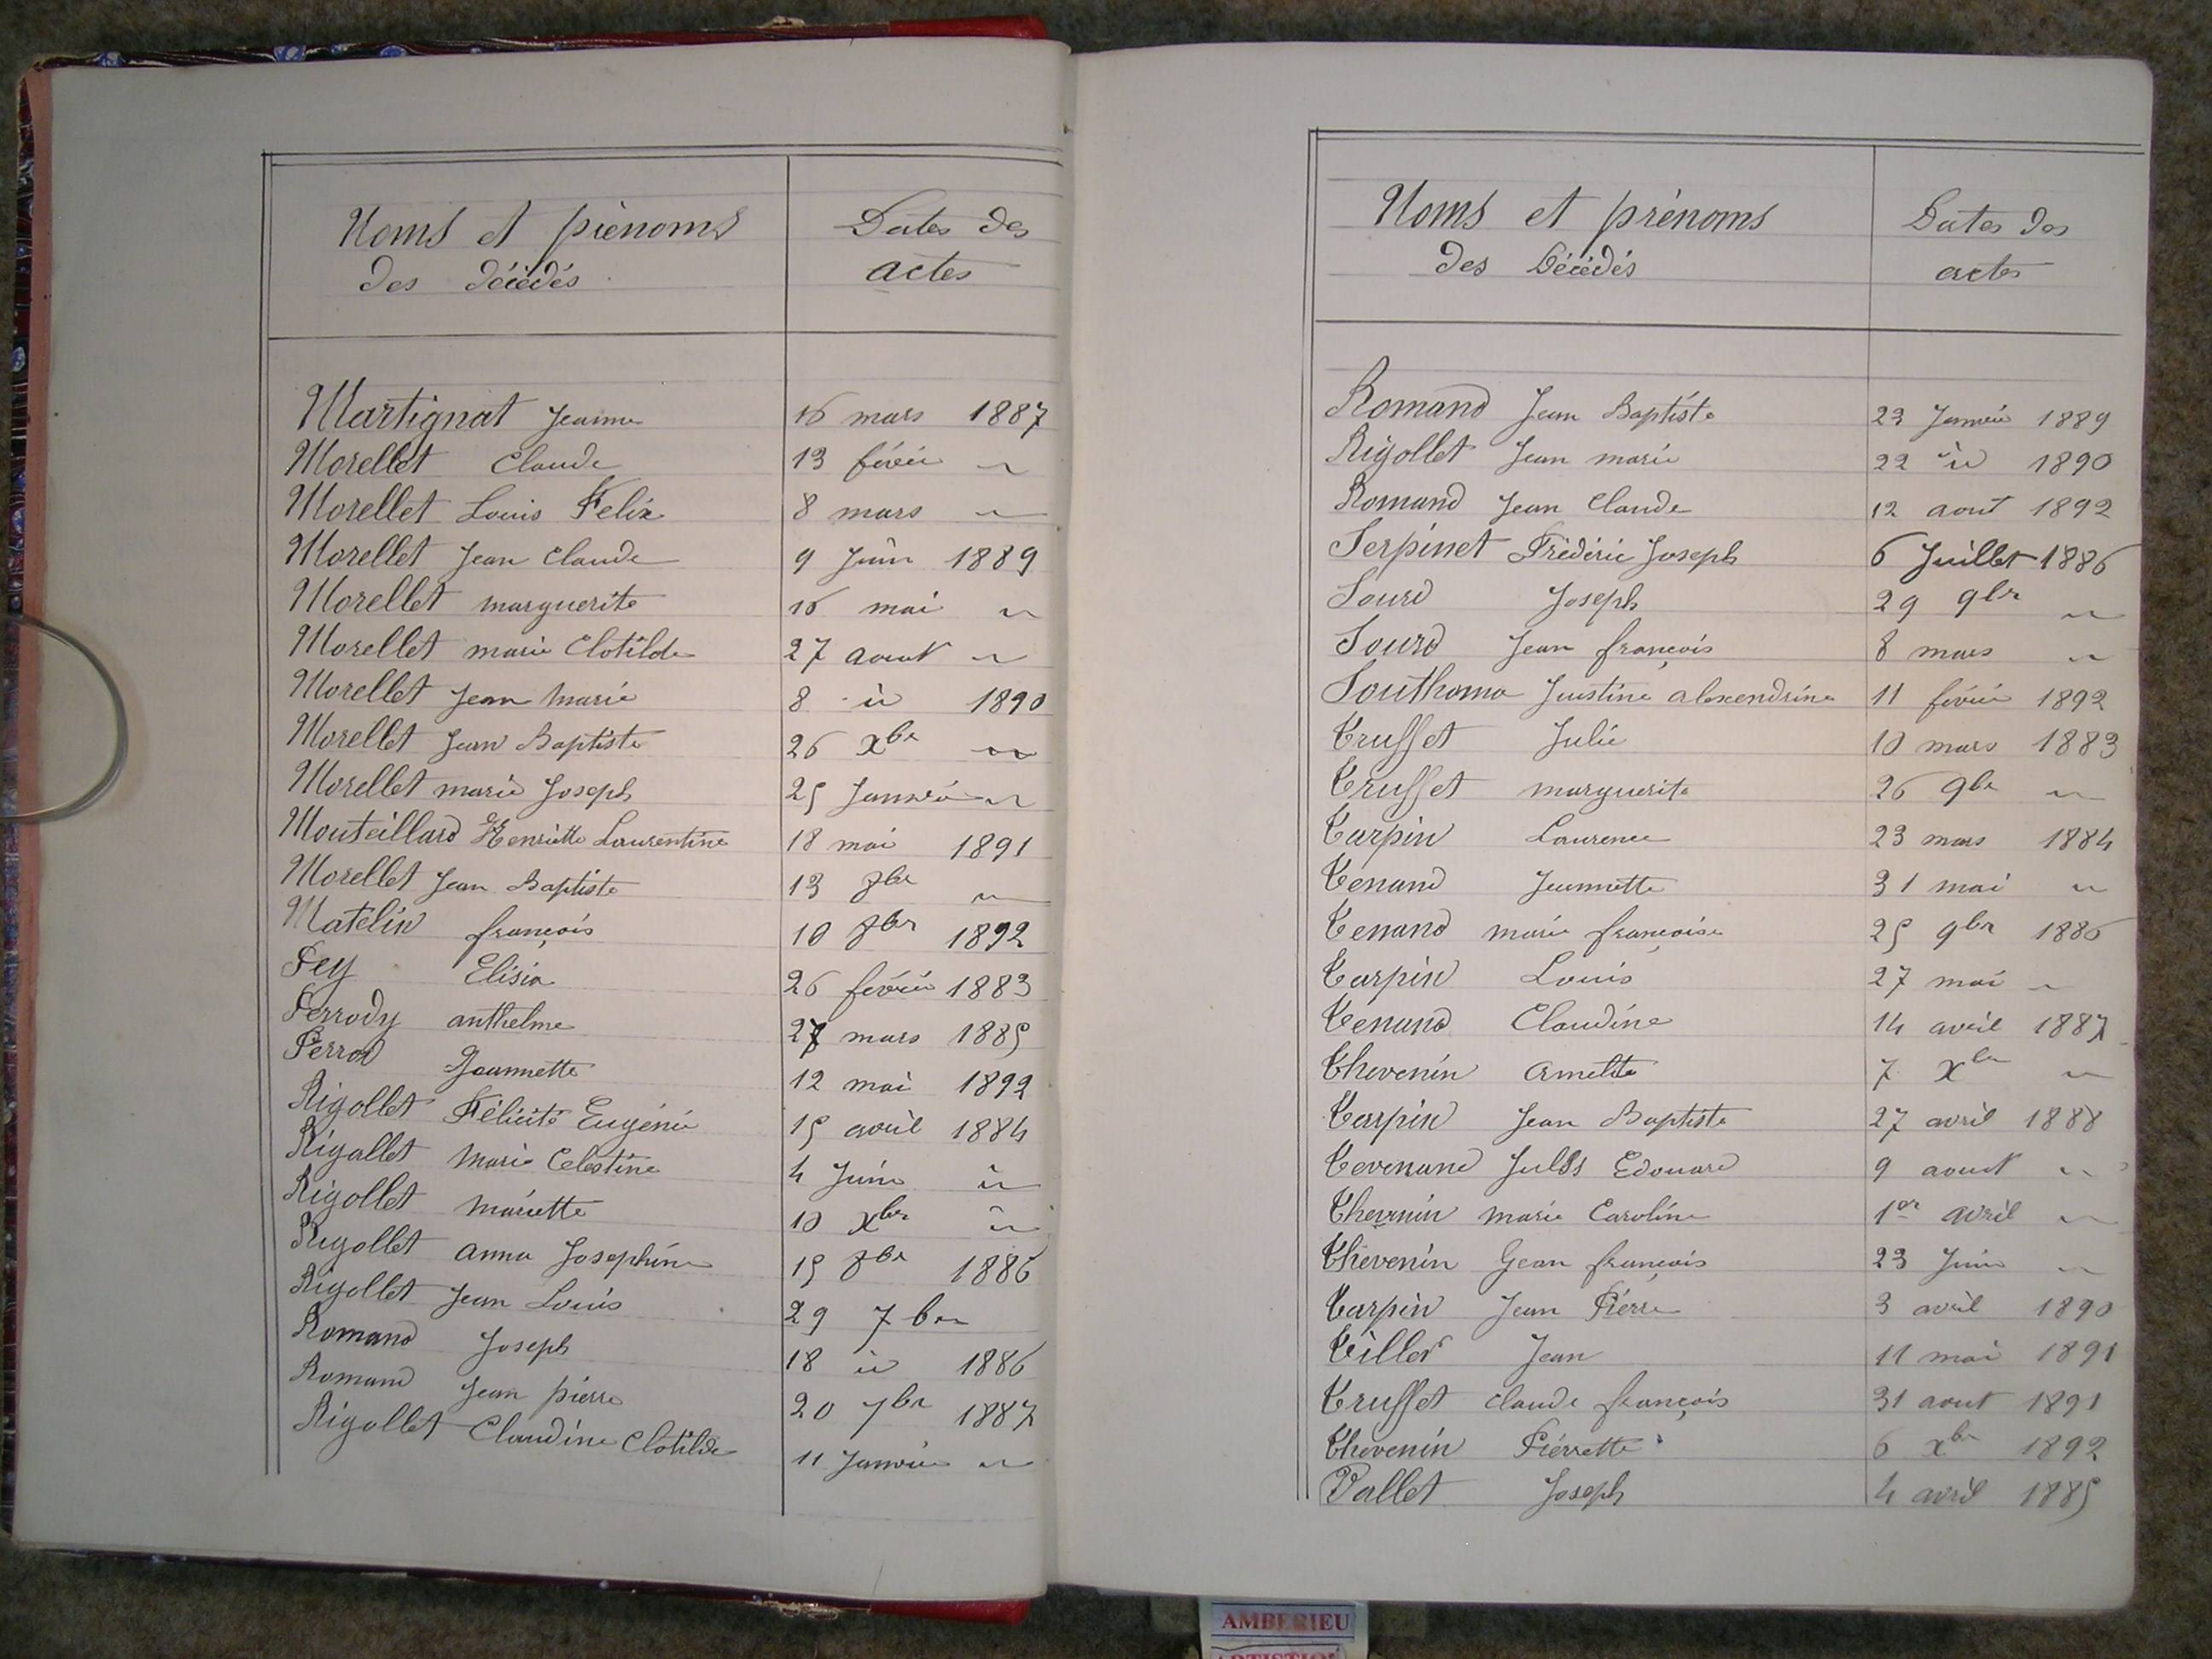 Noms et prénoms
des décédés
Dates des
actes
Martignat Jeanne 16 mars 1887
Morellet Claude 13 février "
Morellet Louis Felix 8 mars "
Morellet Jean Claude 9 Juin 1889
Morellet marguerite 16 mai "
Morellet marie Clotilde 27 aout "
Morellet Jean Marie 8 id 1890
Morellet Jean Baptiste 26 Xbre "
Morellet marie Joseph 25 Janvier "
Monteillard Henriette Laurentine 18 mai 1891
Morellet Jean Baptiste 13 8bre "
Matelin françois 10 8bre 1892
Pey Elisia 26 février 1883
Perrody anthelme 27 mars 1885
Perrod Jeannette 12 mai 1892
Rigollet Félicité Eugénie 15 avril 1884
Rigollet Marie Celestine 4 Juin "
Rigollet Mariette 10 Xbre "
Rigollet anna Josephine 15 8bre 1886
Rigollet Jean Louis 29 7bre
Romand Joseph 18 id 1886
Romand Jean pierre 20 7bre 1887
Rigollet Claudine Clotilde 11 Janvier "
Noms et prénoms
des Décédés
Dates des
actes
Romand Jean Baptiste 23 Janvier 1889
Rigollet Jean marie 22 id 1890
Romand Jean Claude 12 aout 1892
Serpinet Frédéric Joseph 6 Juillet 1886
Sourd Joseph 29 9bre "
Sourd Jean françois 8 mars "
Southoma Justine alexendrine 11 février 1892
Truffet Julie 10 mars 1883
Truffet marguerite 26 9bre "
Tarpin Laurence 23 mars 1884
Tenand Jeannette 31 mai "
Tenand marie françoise 25 9bre 1886
Tarpin Louis 27 mai "
Tenand Claudine 14 avril 1887
Thevenin Amelite 7 Xbre "
Tarpin Jean Baptiste 27 avril 1888
Tevenand Jules Edouard 9 aout "
Thevenin marie Caroline 1er avril "
Thevenin Jean françois 23 Juin "
Tarpin Jean Pierre 3 avril 1890
Tiller Jean 11 mai 1891
Truffet claude françois 31 aout 1891
Thevenin Pierrette 6 Xbre 1892
Vallet Joseph 4 avril 1885
AMBERIEU